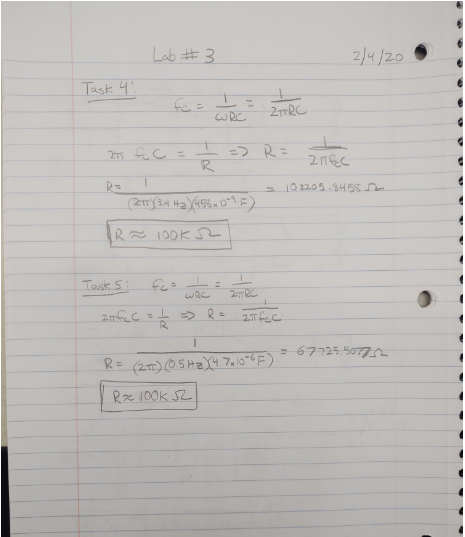 Lab # 3 2/4/20
Task 4:
fc = 1/ωRC = 1/2πRC
2π fc C = 1/R => R = 1/2πfcC
R = 1/(2π)(3.4 Hz)(458x10⁻⁹ F) = 102205.8458 Ω
R ≈ 100K Ω
Task 5: fc = 1/ωRC = 1/2πRC
2πfcC = 1/R => R = 1/2πfcC
R = 1/(2π)(0.5 Hz)(4.7x10⁻⁶ F) = 67725.5077 Ω
R ≈ 100K Ω